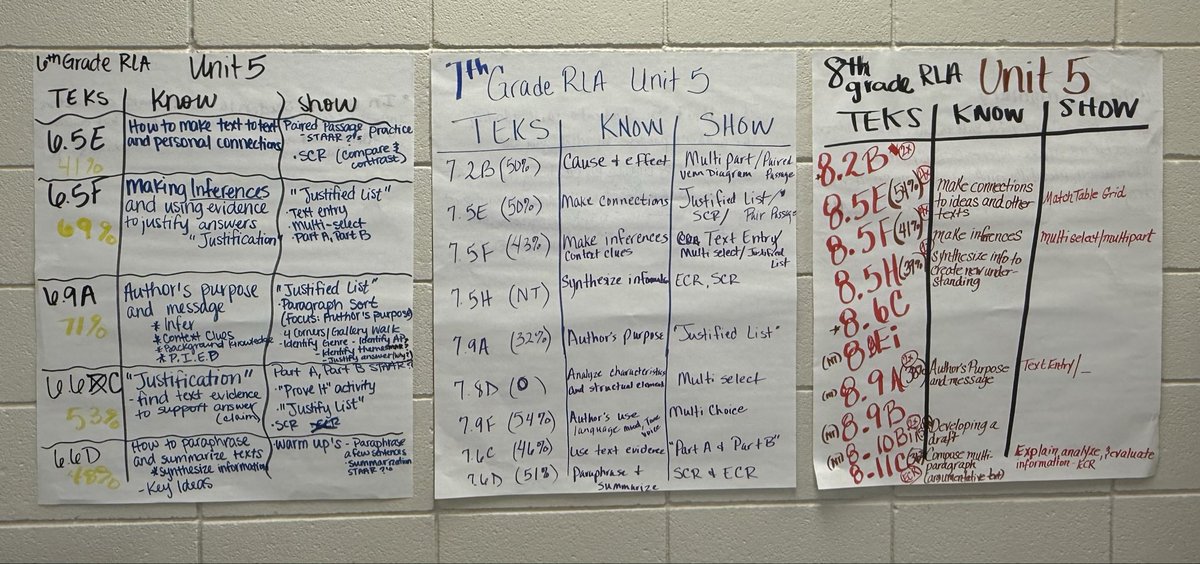 6th Grade RLA Unit 5
TEKS Know Show
6.5E
41%
How to make text to text
and personal connections
Paired Passage practice
- STAAR ?'s
• SCR (compare &
contrast)
6.5F
69%
Making Inferences
and using evidence
to justify answers
"Justification"
"Justified List"
• Text entry
• multi-select
• Part A, Part B
6.9A
71%
Author's purpose
and message
* Infer
* Context Clues
* Background knowledge
* P.I.E.D
"Justified List"
• Paragraph Sort
(focus: Author's purpose)
4 Corners/Gallery Walk
- Identify Genre - Identify AP
- Identify theme
- Justify answer (why?)
Part A, Part B STAAR ?
6.6C
53%
"Justification"
- find text evidence
to support answer
(claim)
• "Prove It" activity
• "Justify List"
• SCR
6.6D
48%
How to paraphrase
and summarize texts
* Synthesize information
- Key Ideas
Warm up's - Paraphrase
a few sentences
- Summarization
STAAR ?'s
7th Grade RLA Unit 5
TEKS KNOW SHOW
7.2B (50%) Cause & effect Multi part/Paired
Venn Diagram Passage
7.5E (50%) Make connections Justified List/
SCR/ Pair Passage
7.5F (43%) Make inferences Text Entry/
Context clues Multi select/Justified
List
7.5H (NT) Synthesize informatn ECR, SCR
7.9A (32%) Author's Purpose "Justified List"
7.8D (0) Analyze characteristics
and structural elements Multi select
7.9F (54%) Author's use
language mood, Tone
voice Multi Choice
7.6C (46%) Use text evidence "Part A & Part B"
7.6D (51%) Paraphrase &
Summarize SCR & ECR
8th grade RLA Unit 5
TEKS KNOW SHOW
8.2B 2x
8.5E (54%) make connections
to ideas and other
texts
Match Table Grid
8.5F (41%) make infrences multi select/multipart
8.5H (39%) synthesize info to
create new under-
standing
* 8.6C
(NT) 8.8Ei
8.9A 2x Author's Purpose
and message
Text Entry/_
(NT) 8.9B
8.10Bi Developing a
draft
(NT) 8.11C Compose multi-
paragraph
(argumentative text)
Explain, analyze, & evaluate
information - ECR